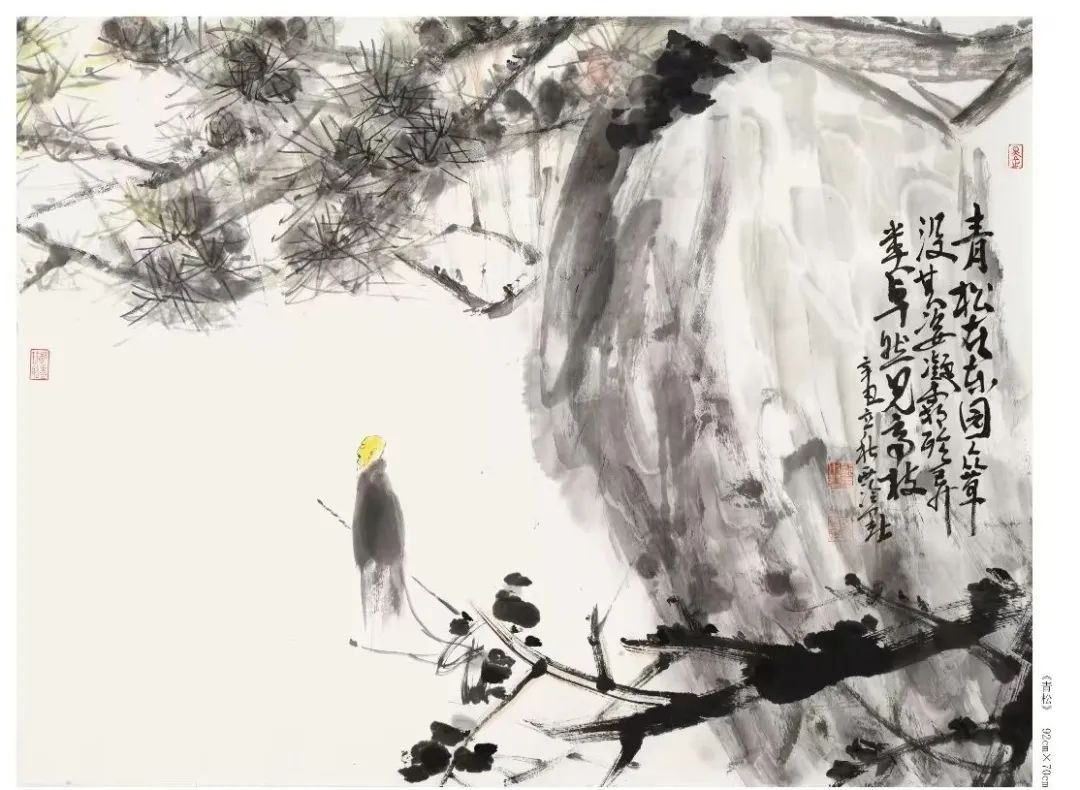 青松在东园众草
没其姿凝霜殄异
类卓然见高枝
辛丑立秋
《青松》 92cm×70cm